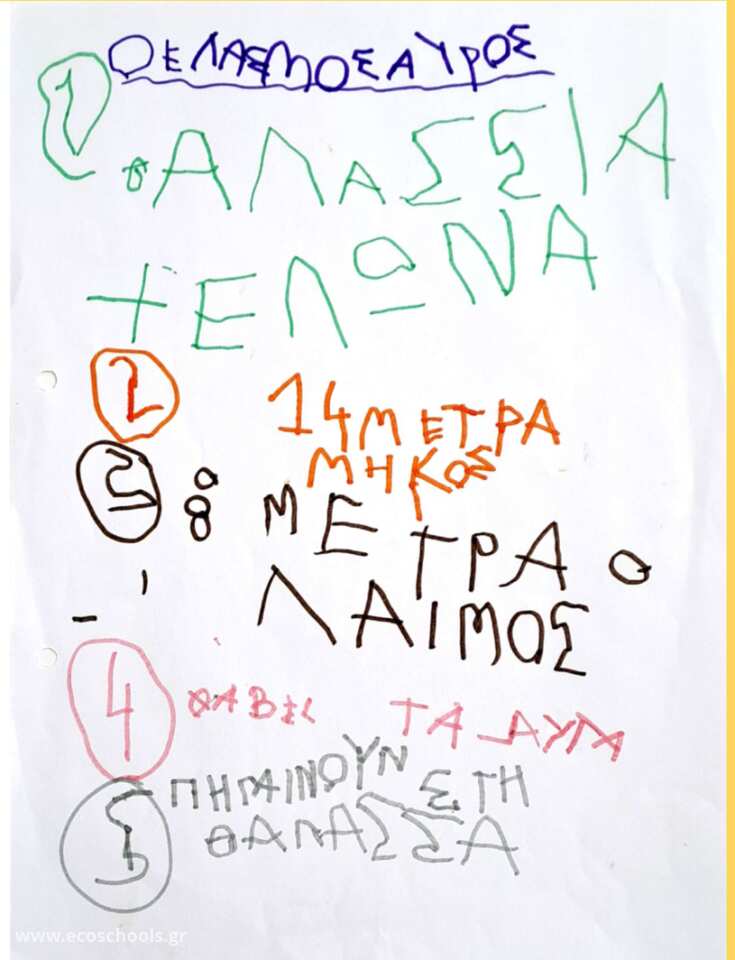 Ο ΕΛΑΣΜΟΣΑΥΡΟΣ
1 ΘΑΛΑΣΣΙΑ
ΧΕΛΩΝΑ
2 14 ΜΕΤΡΑ
ΜΗΚΟΣ
3 8 ΜΕΤΡΑ Ο
ΛΑΙΜΟΣ
4 ΘΑΒΕΙ ΤΑ ΑΥΓΑ
5 ΠΗΓΑΙΝΟΥΝ ΣΤΗ
ΘΑΛΑΣΣΑ
www.ecoschools.gr